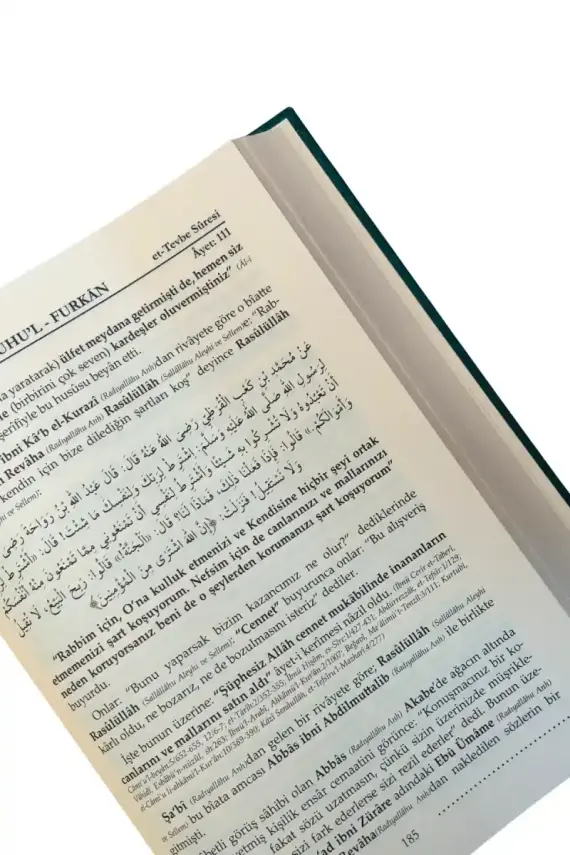 et-Tevbe Sûresi
UHU'L - FURKÂN Âyet: 111
yaratarak) ülfet meydana getirmişti de, hemen siz
(birbirini çok seven) kardeşler oluvermiştiniz" (Âl-i
şerîfiyle bu hususu beyân etti.
ibni Kâ'b el-Kurazî (Radıyallâhu Anh)dan rivâyete göre o biatte
Revâha (Radıyallâhu Anh) Rasûlüllâh (Sallâllâhu Aleyhi ve Sellem)e: "Rab-
kendin için bize dilediğin şartları koş" deyince Rasûlüllâh
ve Sellem):
عَنْ مُحَمَّدِ بْنِ كَعْبٍ الْقُرَظِيِّ رَضِيَ اللهُ عَنْهُ قَالَ: قَالَ عَبْدُ اللهِ بْنُ رَوَاحَةَ رَضِيَ
لِرَسُولِ اللهِ صَلَّى اللهُ عَلَيْهِ وَسَلَّمَ: اِشْتَرِطْ لِرَبِّكَ وَلِنَفْسِكَ مَا شِئْتَ! قَالَ: «أَشْتَرِطُ
أَنْ تَعْبُدُوهُ وَلَا تُشْرِكُوا بِهِ شَيْئًا وَأَشْتَرِطُ لِنَفْسِي أَنْ تَمْنَعُونِي مِمَّا تَمْنَعُونَ مِنْهُ أَنْفُسَكُمْ
وَأَمْوَالَكُمْ.» قَالُوا: فَإِذَا فَعَلْنَا ذٰلِكَ، فَمَاذَا لَنَا؟ قَالَ: «اَلْجَنَّةُ!» قَالُوا: رَبِحَ الْبَيْعُ، لَا نُقِيلُ
وَلَا نَسْتَقِيلُ! فَنَزَلَتْ: ﴿إِنَّ اللهَ اشْتَرٰى مِنَ الْمُؤْمِنِينَ﴾
"Rabbim için, O'na kulluk etmenizi ve Kendisine hiçbir şeyi ortak
etmemenizi şart koşuyorum. Nefsim için de canlarınızı ve mallarınızı
neden koruyorsanız beni de o şeylerden korumanızı şart koşuyorum"
buyurdu.
Onlar: "Bunu yaparsak bizim kazancımız ne olur?" dediklerinde
Rasûlüllâh (Sallâllâhu Aleyhi ve Sellem): "Cennet" buyurunca onlar: "Bu alışveriş
kârlı oldu, ne bozarız, ne de bozulmasını isteriz" dediler.
İşte bunun üzerine: "Şüphesiz Allâh cennet mukâbilinde inananların
canlarını ve mallarını satın aldı" âyet-i kerîmesi nâzil oldu. (İbnü Cerîr et-Taberî,
Câmi'u'l-beyân:5/652-653,
Şa'bî (Radıyallâhu Anh)dan gelen bir rivâyete göre; Rasûlüllâh (Sallâllâhu Aleyhi
ve Sellem) bu biata amcası Abbâs ibni Abdilmuttalib (Radıyallâhu Anh) ile birlikte
gitmişti.
betli görüş sâhibi olan Abbâs (Radıyallâhu Anh) Akabe'de ağacın altında
yetmiş kişilik ensâr cemaatini görünce: "Konuşmacınız bir ko-
fakat sözü uzatmasın, çünkü sizin üzerinizde müşrikle-
sizi fark ederlerse sizi rezil ederler" dedi. Bunun üze-
'ad ibni Zürâre adındaki Ebû Ümâme (Radıyallâhu Anh)
Revâha (Radıyallâhu Anh)dan nakledilen sözlerin bir
185